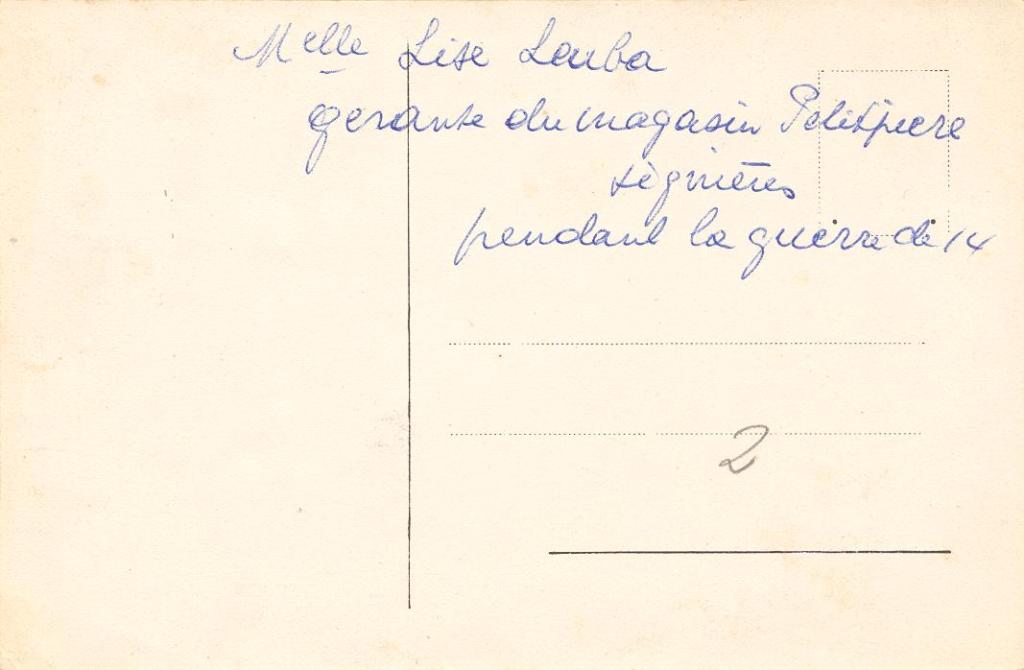 Melle Lise Lauba
gérante du magasin Petitpierre
pendant la guerre de 14
2